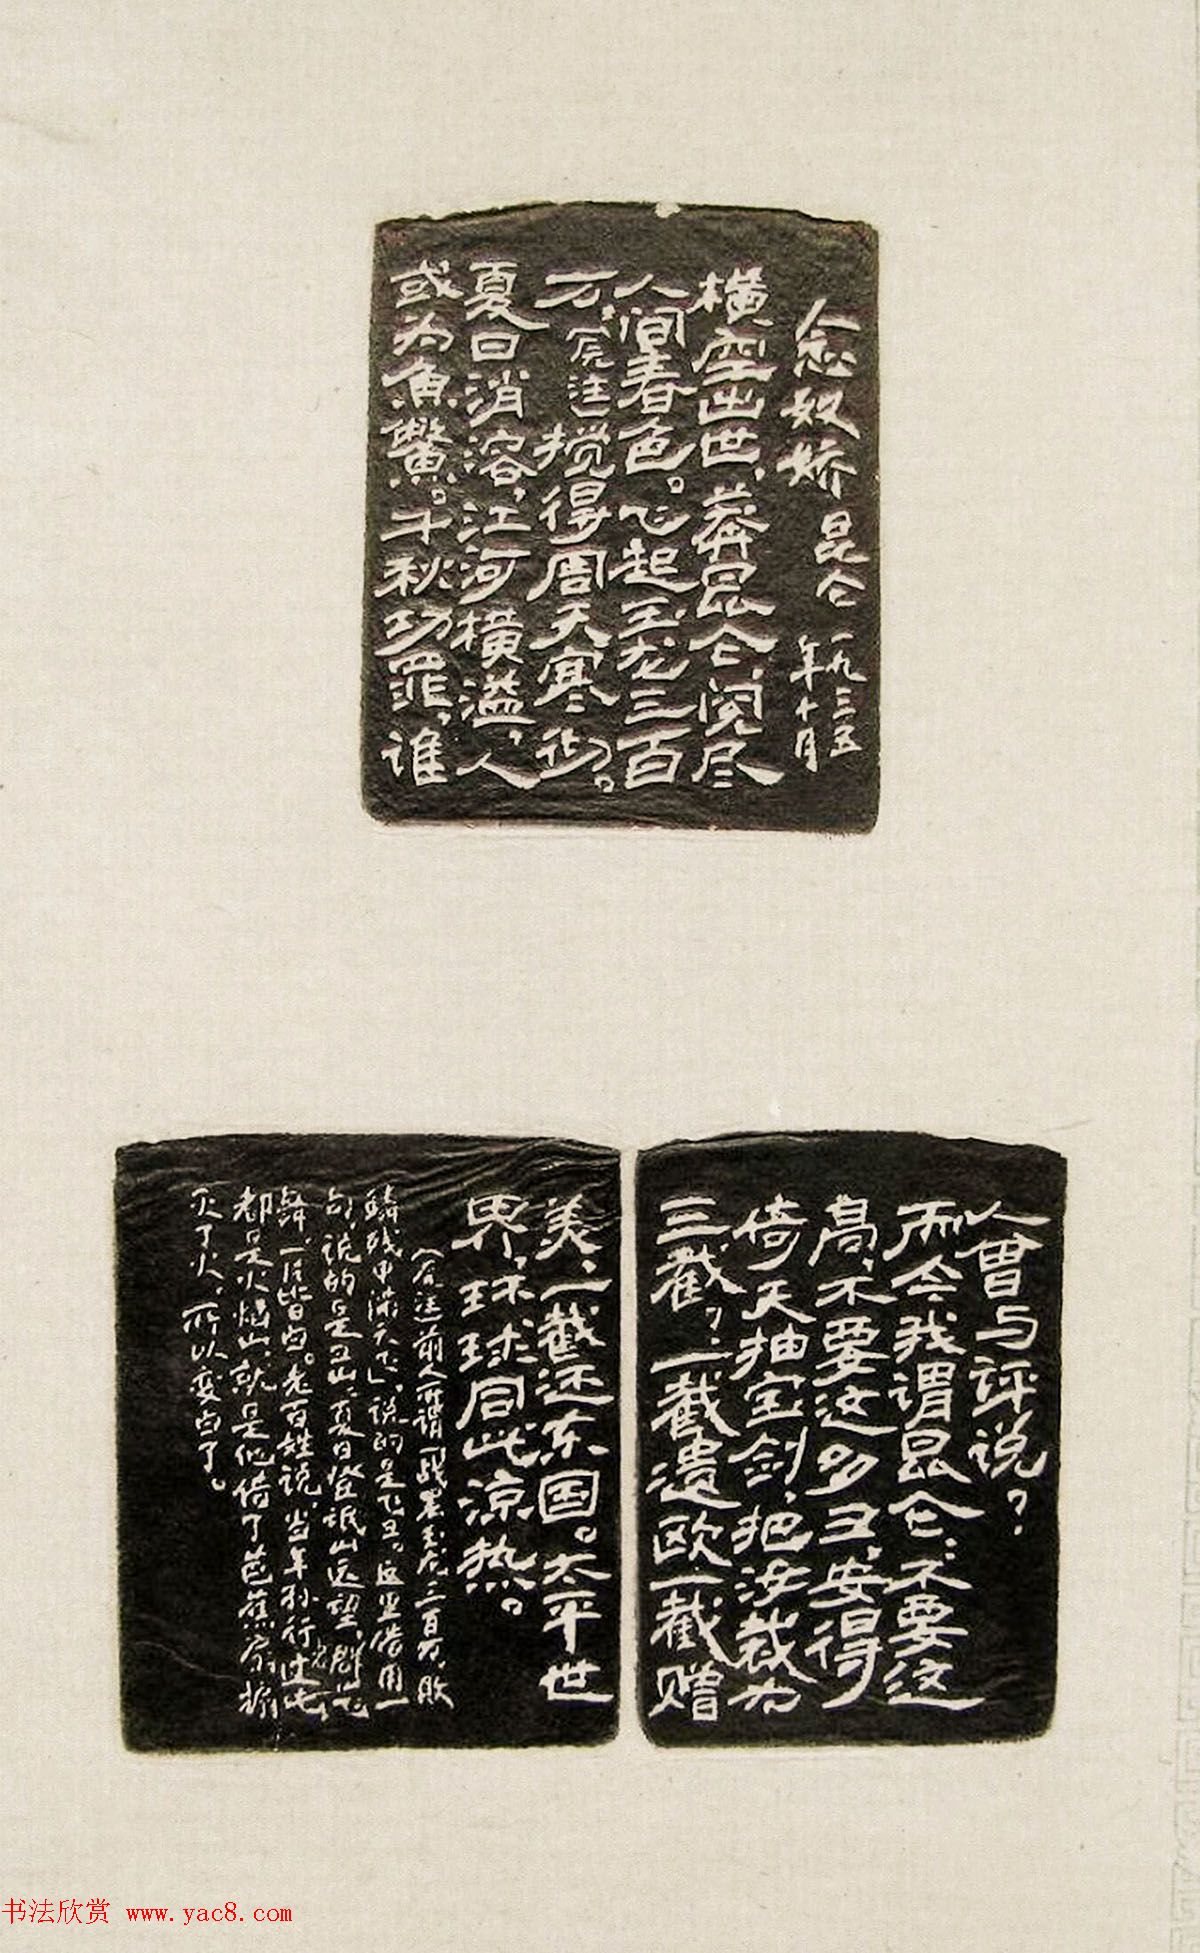 念奴娇 昆仑 一九三五
年十月
横空出世,莽昆仑,阅尽
人间春色。飞起玉龙三百
万,〔原注〕搅得周天寒彻。
夏日消溶,江河横溢,人
或为鱼鳖。千秋功罪,谁
人曾与评说?
而今我谓昆仑:不要这
高,不要这多雪。安得
倚天抽宝剑,把汝裁为
三截?一截遗欧,一截赠
美,一截还东国。太平世
界,环球同此凉热。
〔原注〕前人所谓「战罢玉龙三百万,败
鳞残甲满天飞」,说的是飞雪。这里借用一
句,说的是雪山。夏日登岷山远望,群山飞
舞,一片皆白。老百姓说,当年孙行者过此,
都是火焰山,就是他借了芭蕉扇搧
灭了火,所以变白了。
书法欣赏 www.yac8.com